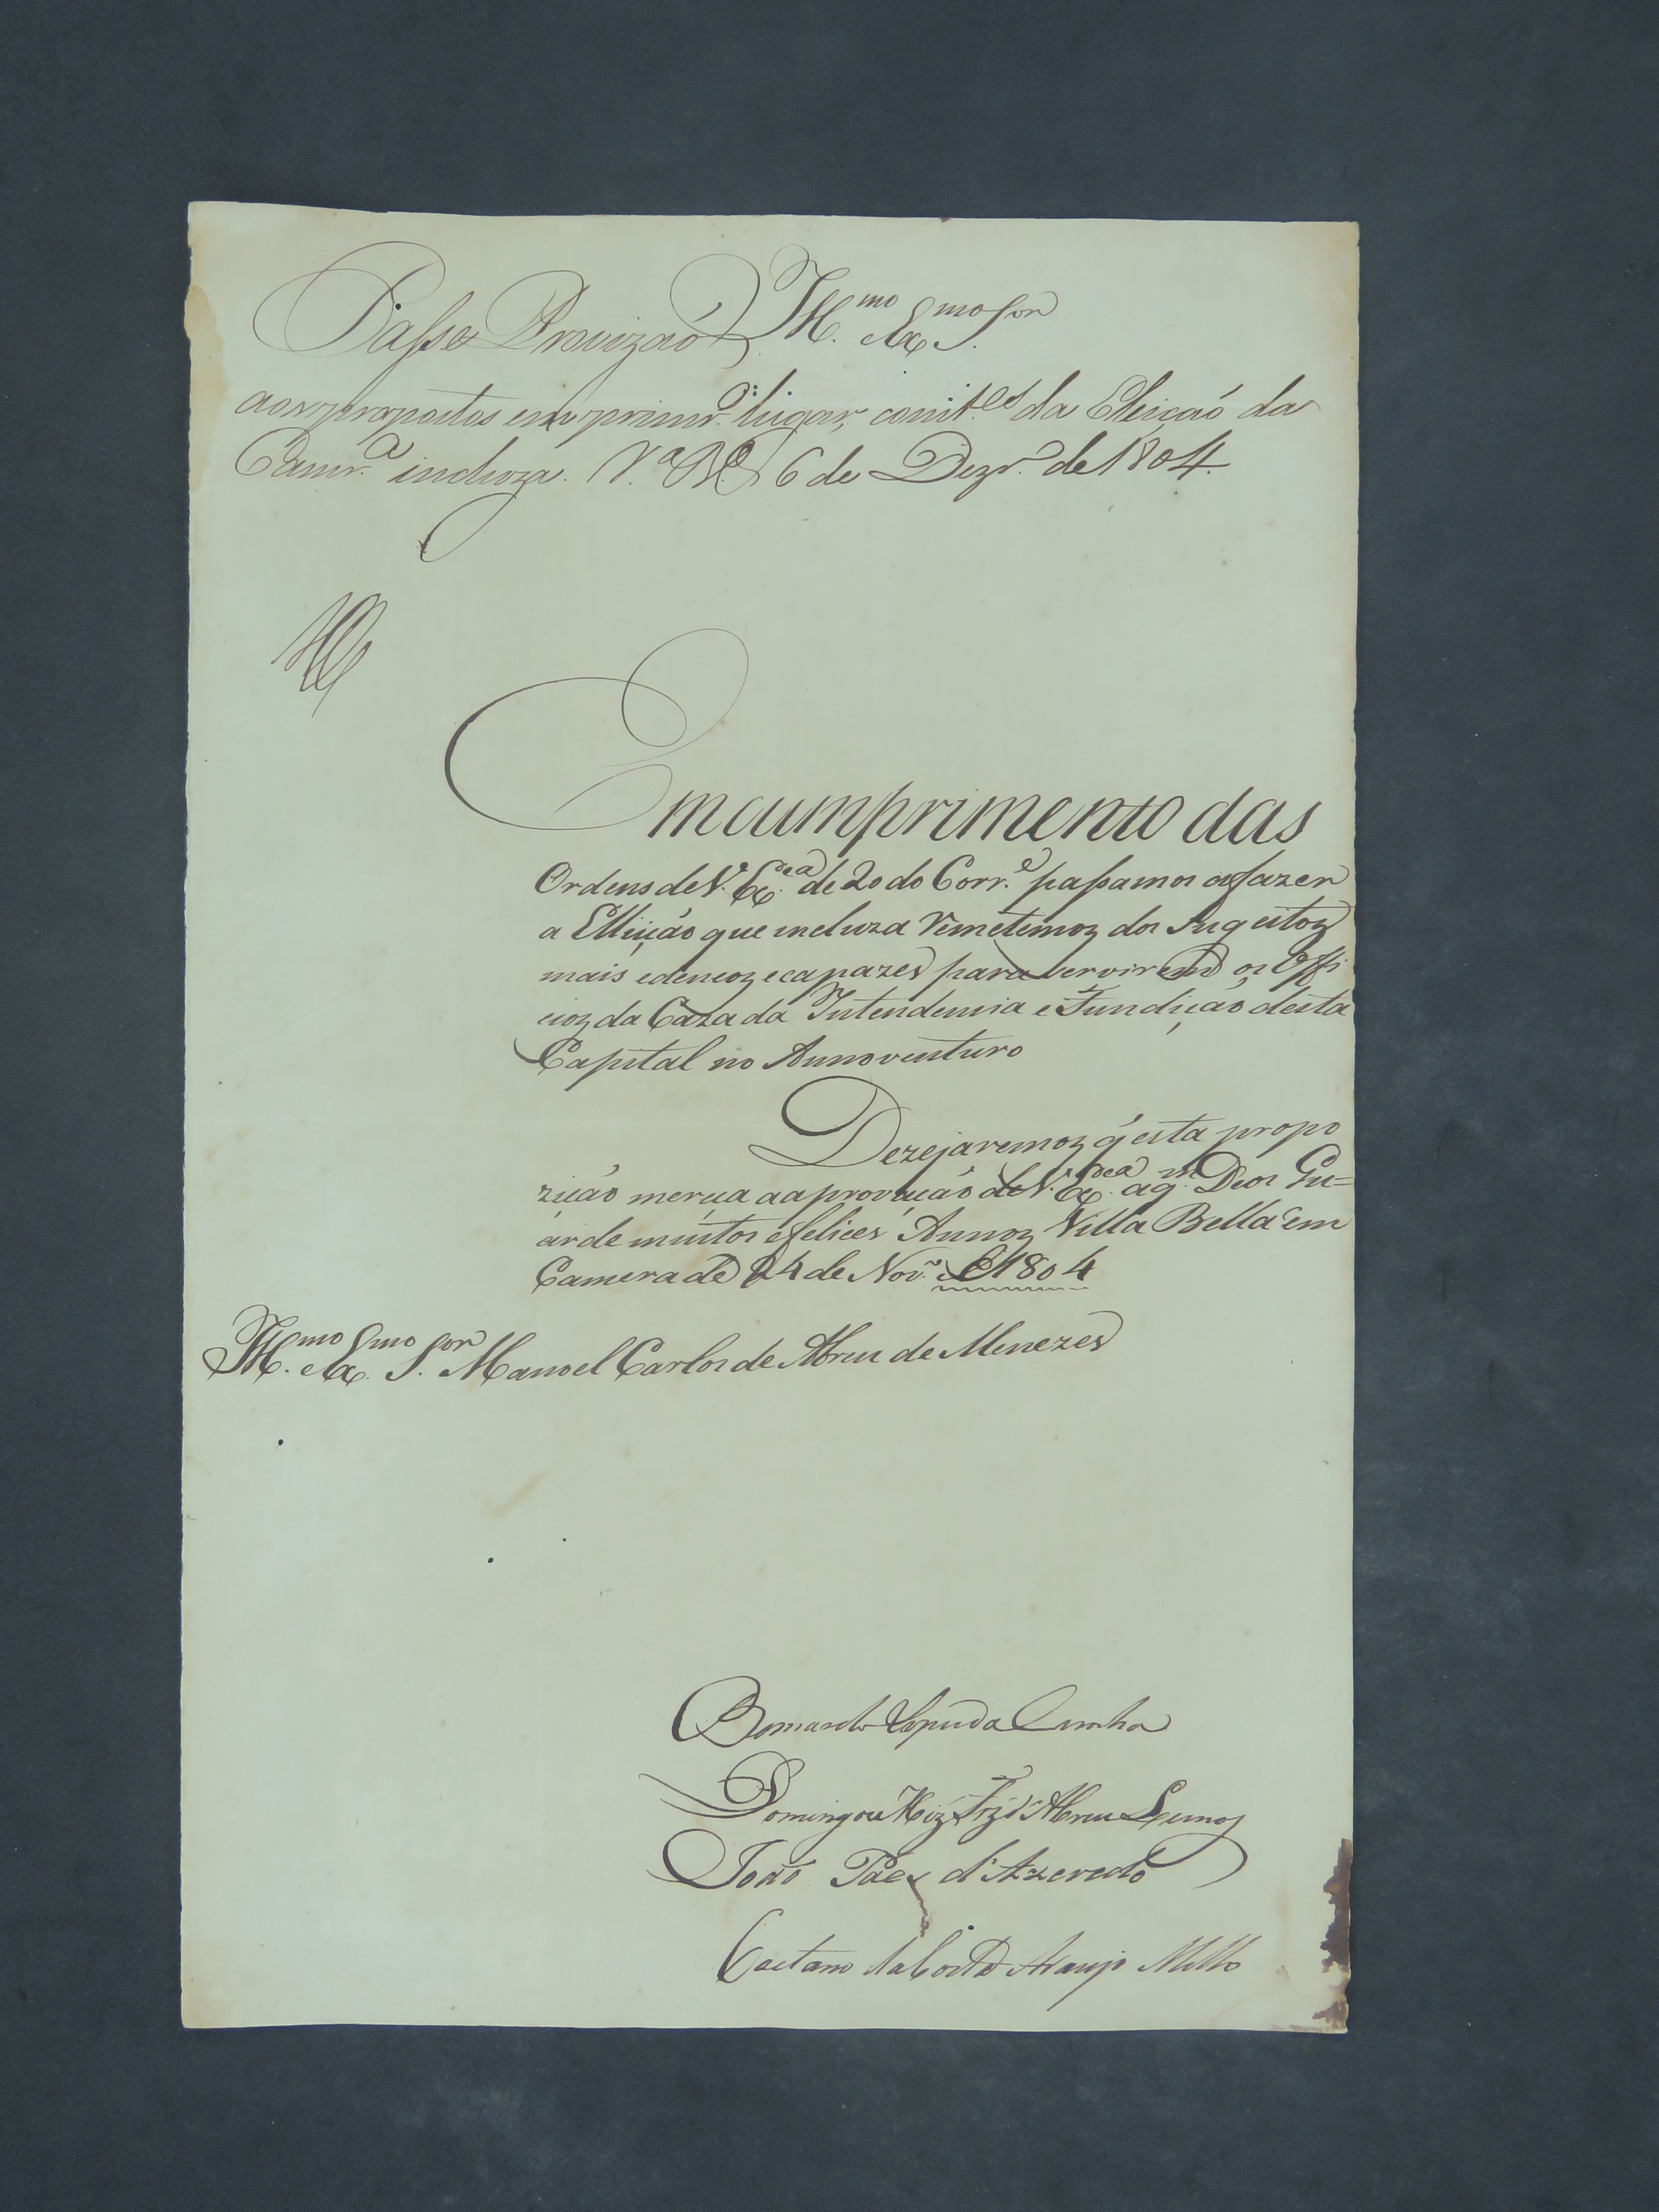 Passe Provizaõ Ill.mo Ex.mo S.or
aos propostos em primr.o lugar, const.es da Eleiçaõ da
Camr.a incluza. V.a B.a 6 de Dezr.o de 1804.
Em cumprimento das
Ordens de V. Ex.cia de 20 do Corr.e passamos afazer
a Elleiçáo que incluza Remetemoz dos Sugeitoz
mais edeneoz ecapazes para servirem os Offi
cioz da Caza da Intendencia e Fundiçáo desta
Capital no Anno venturo
Dezejaremoz q́ esta propo
ziçáo merça a aprovaçáo de V. Ex.cia a q.m Deos Gu=
arde muitos efelices Annoz Villa Bella em
Camera de 24 de Nov.o de 1804
Ill.mo Ex.mo S.or Manoel Carlos de Abreu de Menezes
Bernardo Lopes da Cunha
Domingos Frz d'Abreu Lemos
Joaõ Paes d'Azevedo
Caetano da Costa Araujo Mello